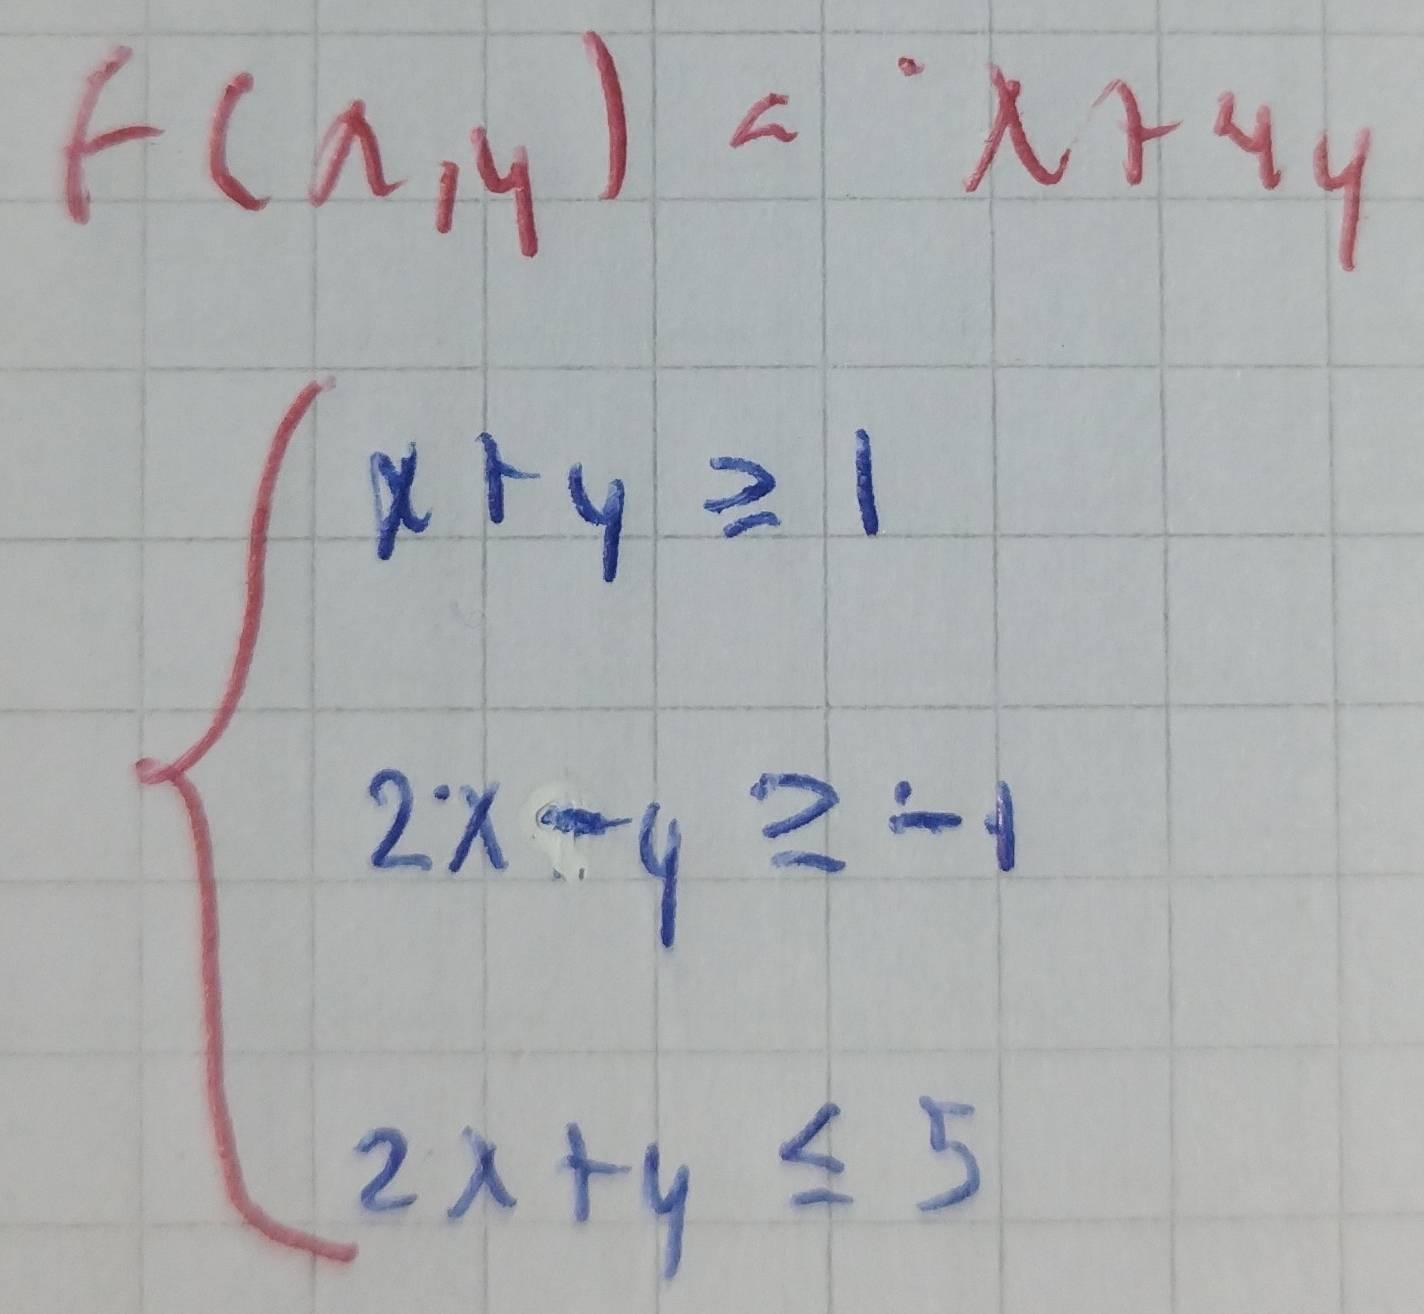 F(x,y) = x+4y
x+y ≥ 1
2x-y ≥ -1
2x+y ≤ 5